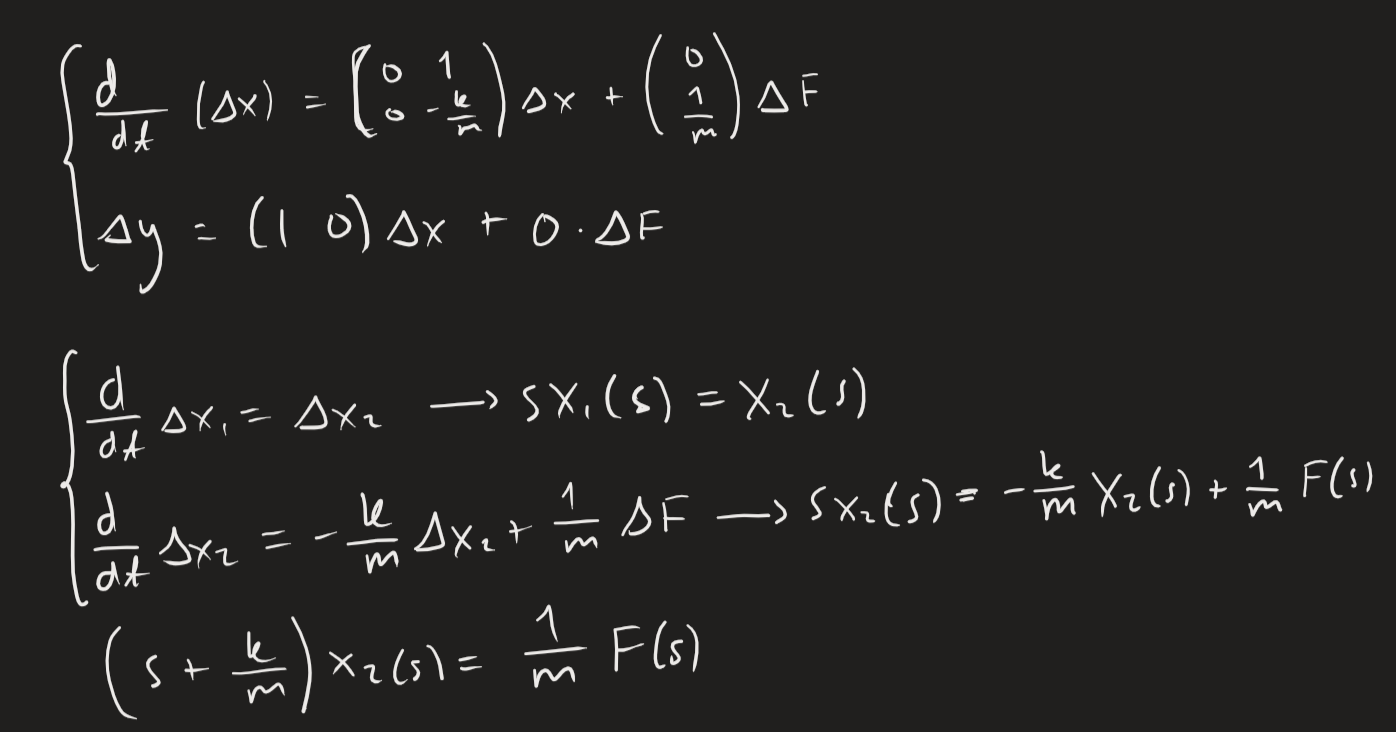 d/dt (Δx) = (0 1 ; 0 -k/m) Δx + (0 ; 1/m) ΔF
Δy = (1 0) Δx + 0 · ΔF
d/dt Δx₁ = Δx₂ → sX₁(s) = X₂(s)
d/dt Δx₂ = -k/m Δx₂ + 1/m ΔF → sX₂(s) = -k/m X₂(s) + 1/m F(s)
(s + k/m) X₂(s) = 1/m F(s)